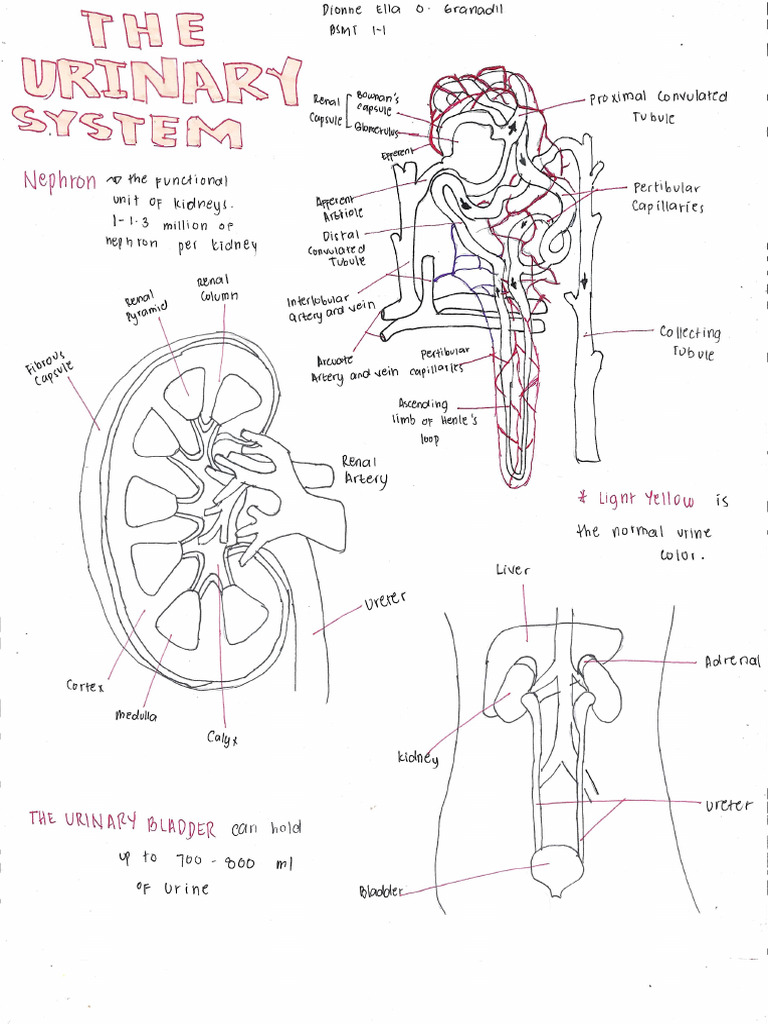 Dionne Ella O. Granadil
BSMT 1-1
THE
URINARY
SYSTEM
Nephron ~> the functional
unit of kidneys.
1-1.3 million of
nephron per kidney
Renal
Capsule
Bowman's
capsule
Glomerulus
Efferent
Afferent
Arteriole
Distal
Convoluted
Tubule
Interlobular
artery and vein
Arcuate
Artery and vein
Pertibular
capillaries
Ascending
limb of Henle's
loop
Proximal Convulated
Tubule
Pertibular
Capillaries
Collecting
Tubule
* Light Yellow is
the normal urine
color.
Fibrous
Capsule
Renal
Pyramid
Renal
Column
Renal
Artery
Ureter
Cortex
Medulla
Calyx
THE URINARY BLADDER can hold
up to 700-800 ml
of urine
Liver
Adrenal
Kidney
Ureter
Bladder